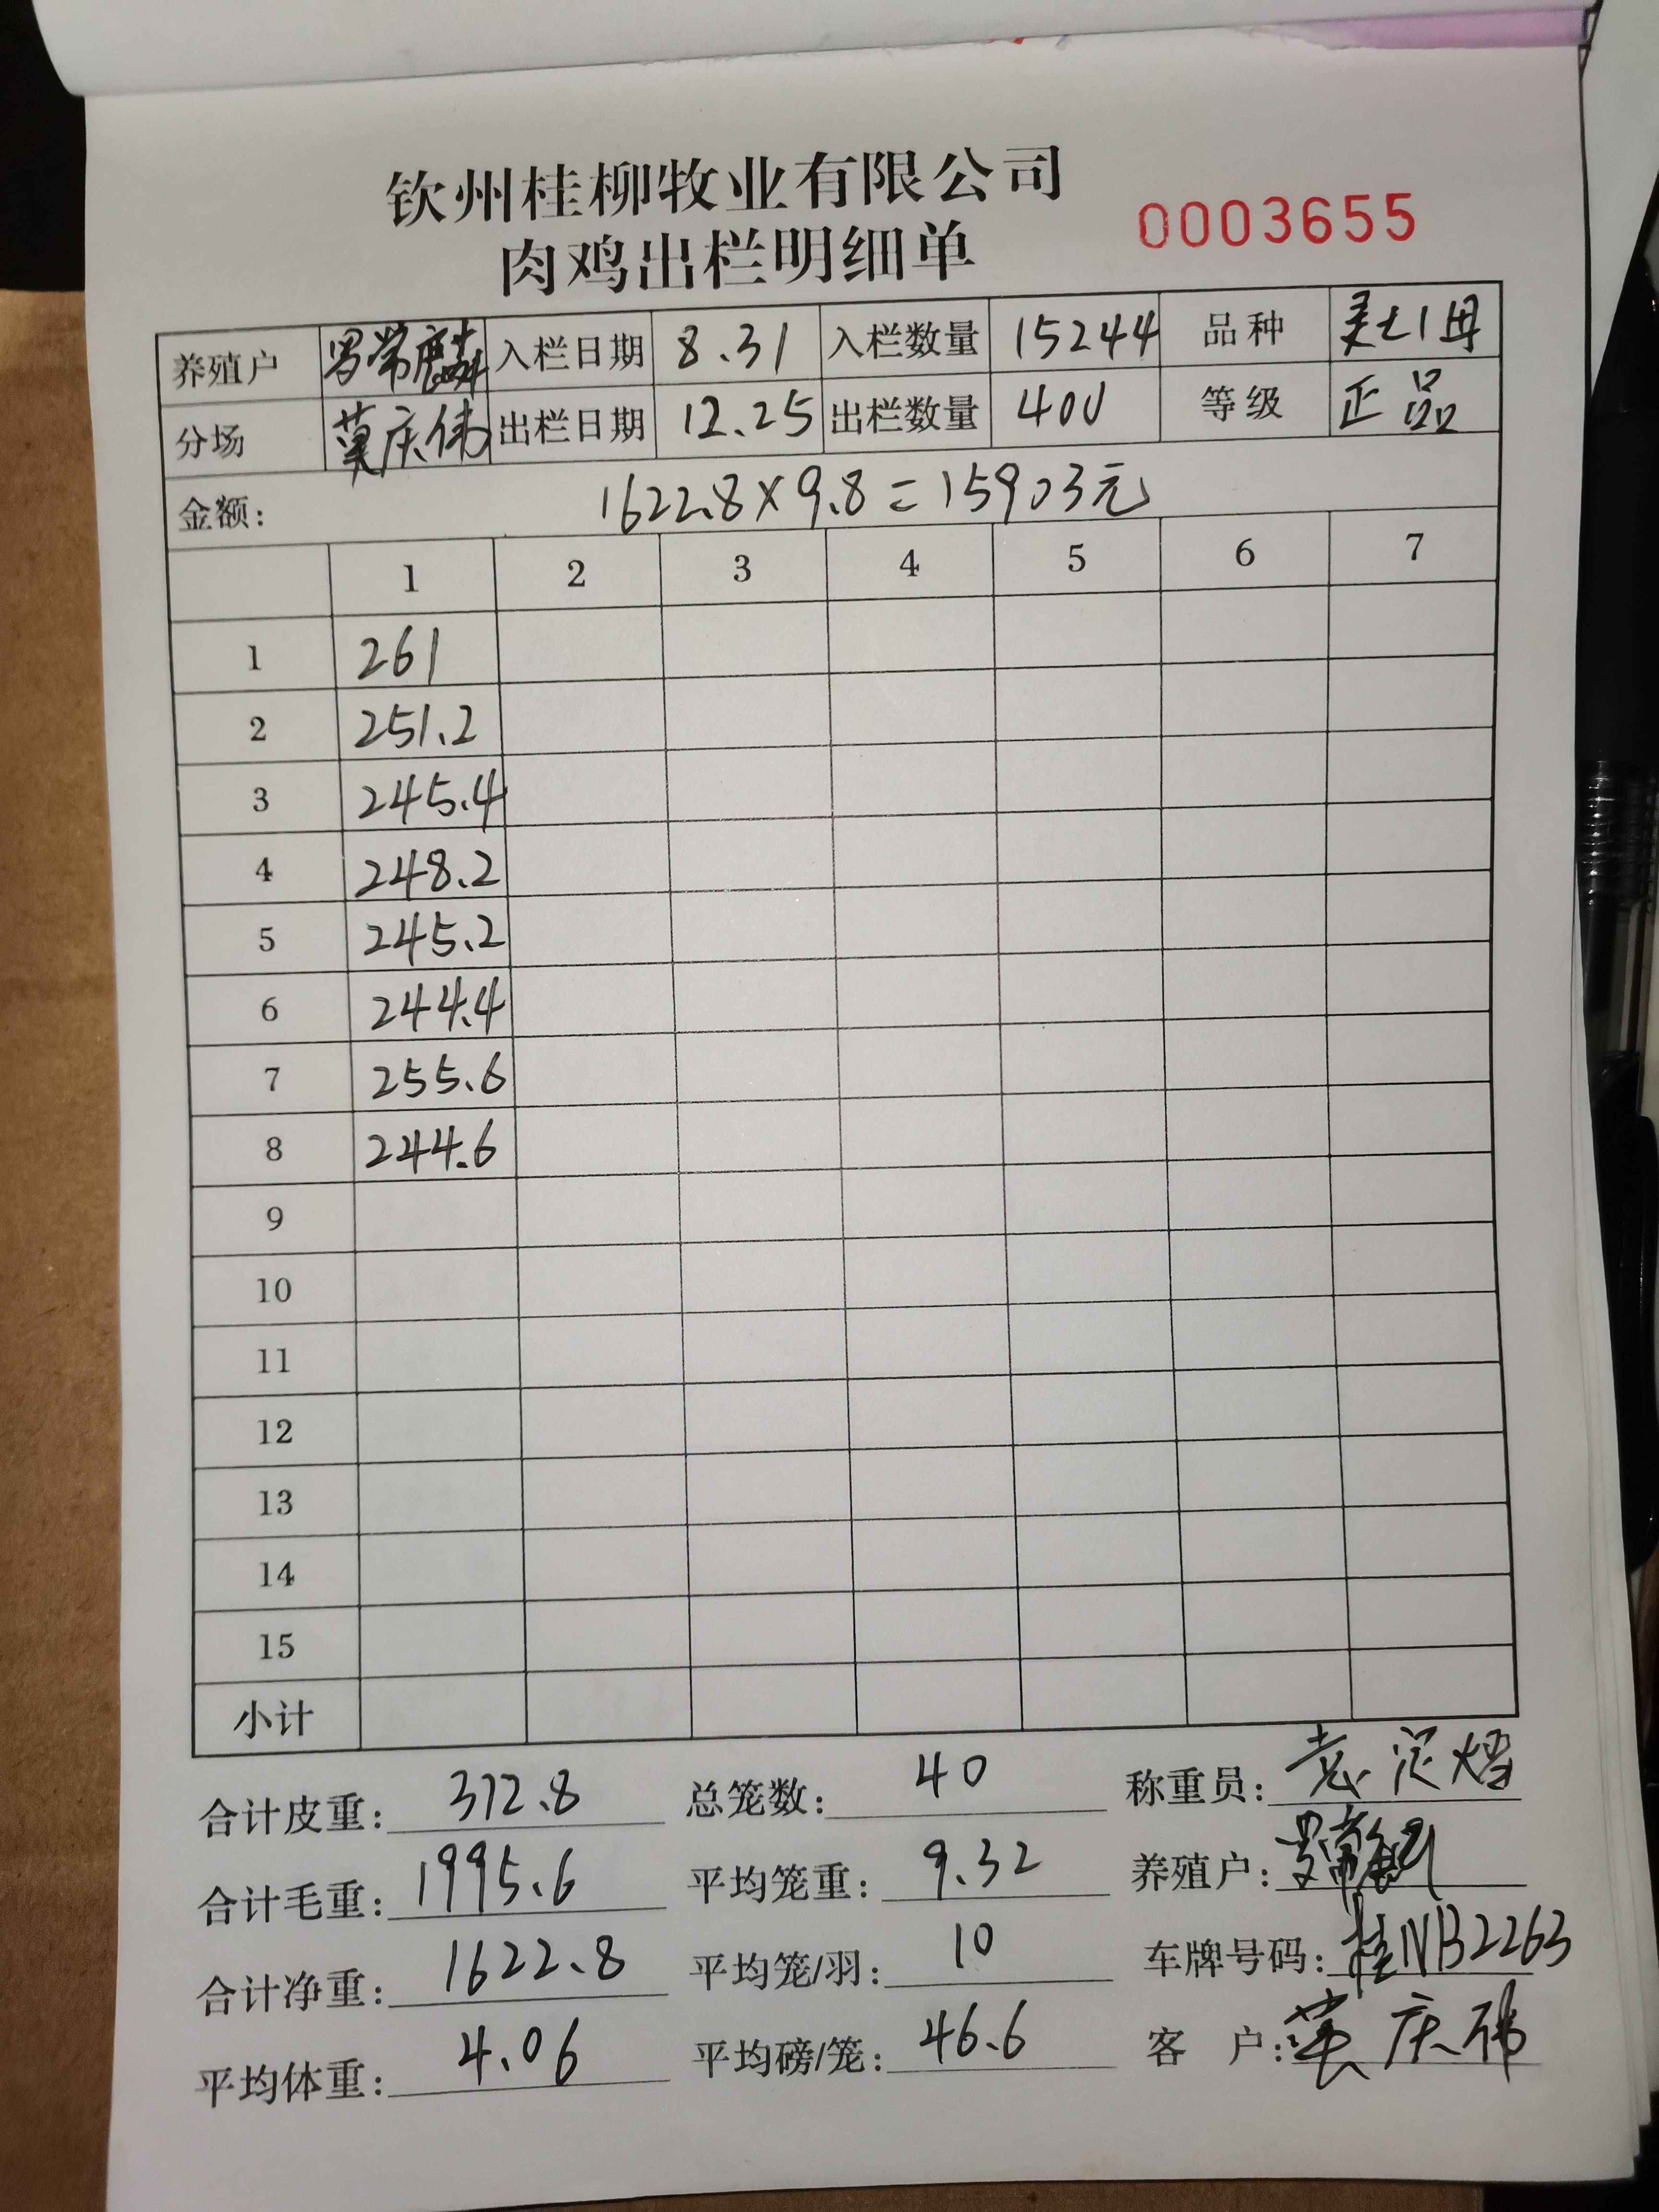 钦州桂柳牧业有限公司
肉鸡出栏明细单 0003655
养殖户 罗常麟 入栏日期 8.31 入栏数量 15244 品种
分场 莫庆伟 出栏日期 12.25 出栏数量 400 等级 正品
金额: 1622.8×9.8=15903元
1 2 3 4 5 6 7
1 261
2 251.2
3 245.4
4 248.2
5 245.2
6 244.4
7 255.6
8 244.6
9
10
11
12
13
14
15
小计
合计皮重: 372.8 总笼数: 40 称重员:
合计毛重: 1995.6 平均笼重: 9.32 养殖户:
合计净重: 1622.8 平均笼/羽: 10 车牌号码: 桂NB2263
平均体重: 4.06 平均磅/笼: 46.6 客户: 莫庆伟